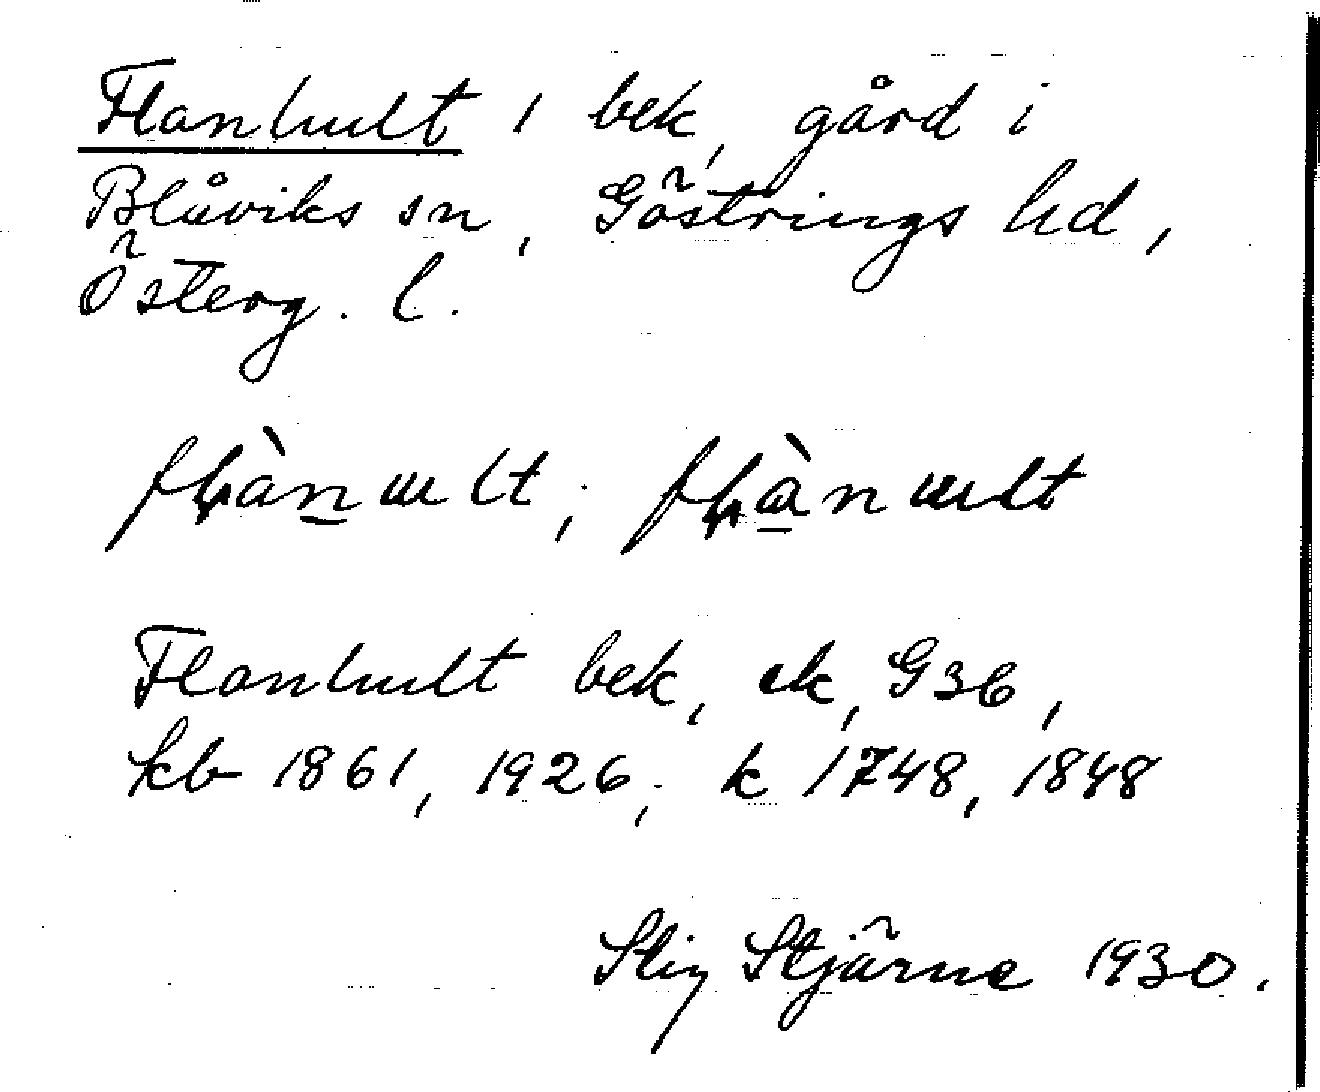 Flanhult 1 bek, gård i
Blåviks sn, Göstrings hd,
Österg. l.
Flanhult bek, ek, G36,
kb 1861, 1926; k 1748, 1848
Stig Stjärne 1930.